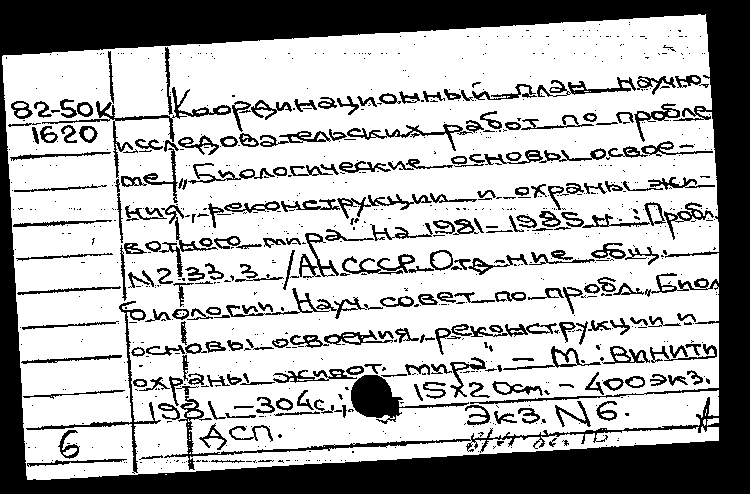 82-50К
1620
Координационный план научно-
исследовательских работ по пробле
ме „Биологические основы освое-
ния, реконструкции и охраны жи-
вотного мира" на 1981-1985 гг.: Пробл.
N2.33.3. /АН СССР. Отд-ние общ.
биологии. Науч. совет по пробл. „Биол
основы освоения, реконструкции и
охраны живот. мира". – М.: ВИНИТИ
1981. – 304с.; 15×20см. – 400экз.
ДСП. Экз. N6.
6